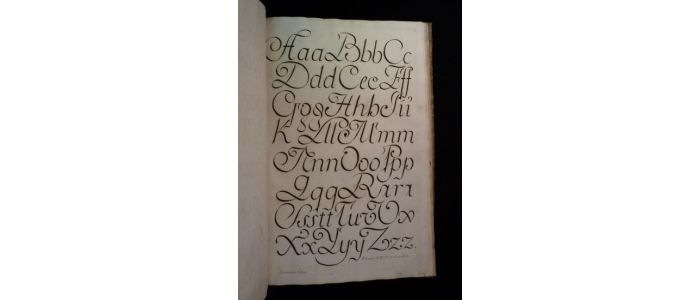 AaaBbbCc
DddCecFff
GosHhhIii
k LllMmm
NnnOooPpp
QqqRırı
SssttTuvUx
XxYyyZzz.